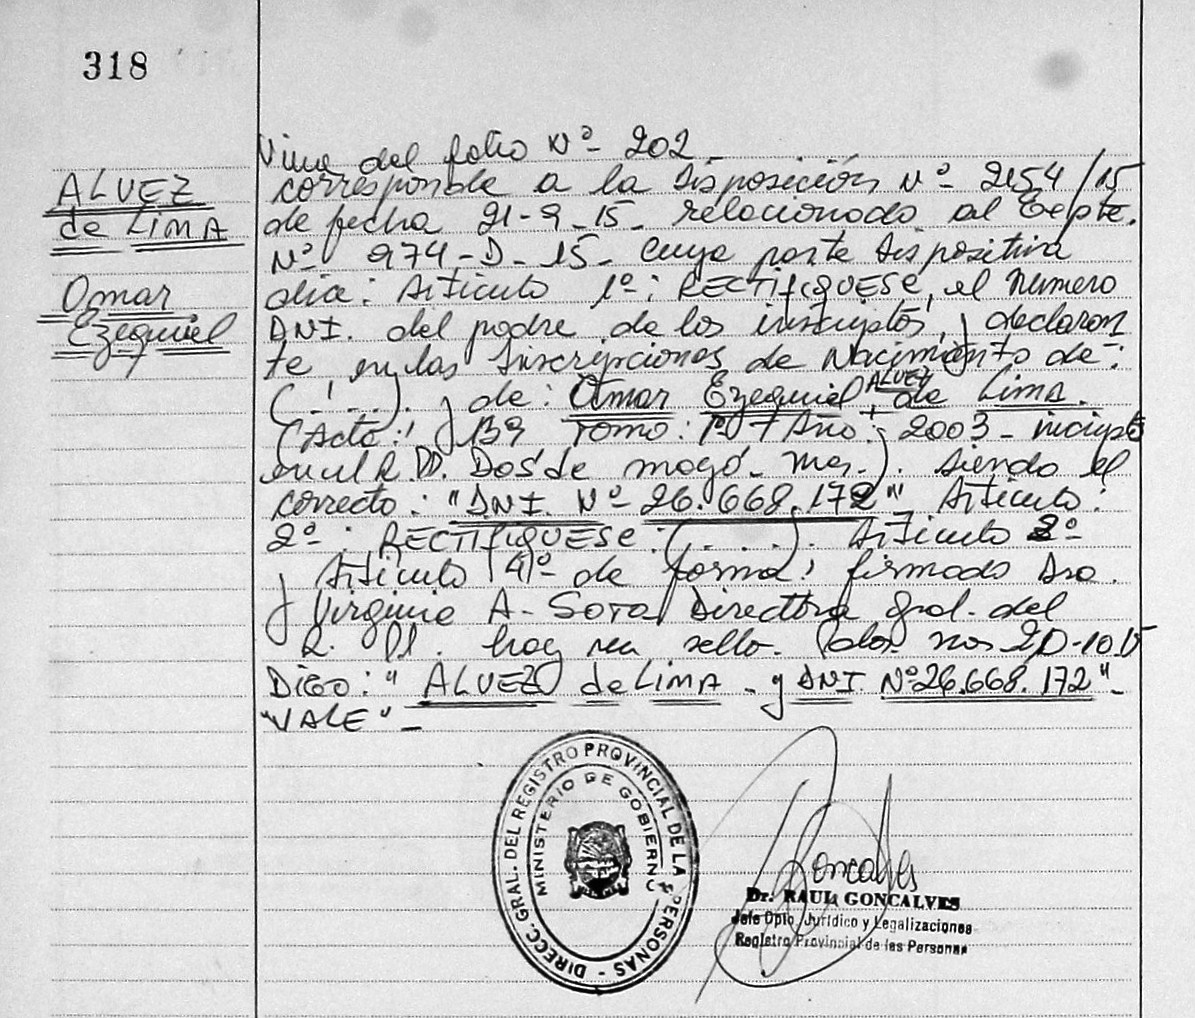 318
ALVEZ
de LIMA
Omar
Ezequiel
Viene del folio Nº 202.
corresponde a la Disposición Nº 2154/15
de fecha 21-9-15- relacionado al Expte.
Nº 974-D-15- cuya parte dispositiva
dice: Artículo 1º: RECTIFIQUESE, el Número
DNI. del padre de los inscriptos, y declaran
te, en las Inscripciones de Nacimiento de:
(.....). y de: Omar Ezequiel ALVEZ de Lima.
(Acta: 139 Tomo: 1º Año: 2003- inscripto
en el R.PP. Dos de mayo- Mes.). siendo el
correcto: "DNI. Nº 26.668.172" Artículo:
2º: RECTIFIQUESE:(.....). Artículo 3º
y Artículo 4º de forma: firmado Dra.
Virginia A- Sota Directora Gral. del
R. PP. hay un sello. Pdas. Mnes 20-10-15
DIGO: " ALVEZ de LIMA - y DNI. Nº26.668.172"-
"VALE"-
DIRECC. GRAL. DEL REGISTRO PROVINCIAL DE LA PERSONAS -
MINISTERIO DE GOBIERNO
Goncalves
Dr. RAUL GONCALVES
Jefe Dpto. Jurídico y Legalizaciones
Registro Provincial de las Personas